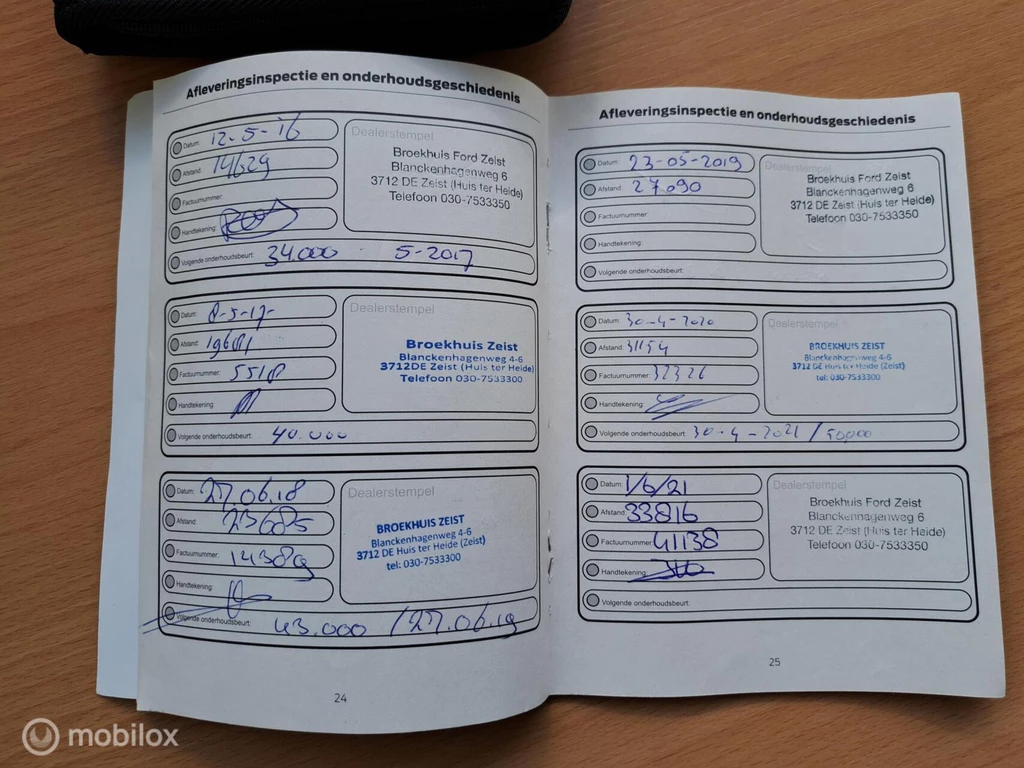 Afleveringsinspectie en onderhoudsgeschiedenis
Datum: 12-5-16
Afstand: 14629
Factuurnummer:
Handtekening:
Volgende onderhoudsbeurt: 34.000 5-2017
Dealerstempel
Broekhuis Ford Zeist
Blanckenhagenweg 6
3712 DE Zeist (Huis ter Heide)
Telefoon 030-7533350
Datum: 8-5-17-
Afstand: 19681
Factuurnummer: 5518
Handtekening:
Volgende onderhoudsbeurt: 40.000
Dealerstempel
Broekhuis Zeist
Blanckenhagenweg 4-6
3712DE Zeist (Huis ter Heide)
Telefoon 030-7533300
Datum: 27.06.18
Afstand: 23685
Factuurnummer: 14389
Handtekening:
Volgende onderhoudsbeurt: 43.000 / 27.06.19
Dealerstempel
BROEKHUIS ZEIST
Blanckenhagenweg 4-6
3712 DE Huis ter Heide (Zeist)
tel: 030-7533300
24
Afleveringsinspectie en onderhoudsgeschiedenis
Datum: 23-05-2019
Afstand: 27090
Factuurnummer:
Handtekening:
Volgende onderhoudsbeurt:
Dealerstempel
Broekhuis Ford Zeist
Blanckenhagenweg 6
3712 DE Zeist (Huis ter Heide)
Telefoon 030-7533350
Datum: 30-4-2020
Afstand: 31154
Factuurnummer: 32326
Handtekening:
Volgende onderhoudsbeurt: 30-4-2021 / 50,000
Dealerstempel
BROEKHUIS ZEIST
Blanckenhagenweg 4-6
3712 DE Huis ter Heide (Zeist)
tel: 030-7533300
Datum: 1/6/21
Afstand: 33816
Factuurnummer: 41138
Handtekening:
Volgende onderhoudsbeurt:
Dealerstempel
Broekhuis Ford Zeist
Blanckenhagenweg 6
3712 DE Zeist (Huis ter Heide)
Telefoon 030-7533350
25
mobilox